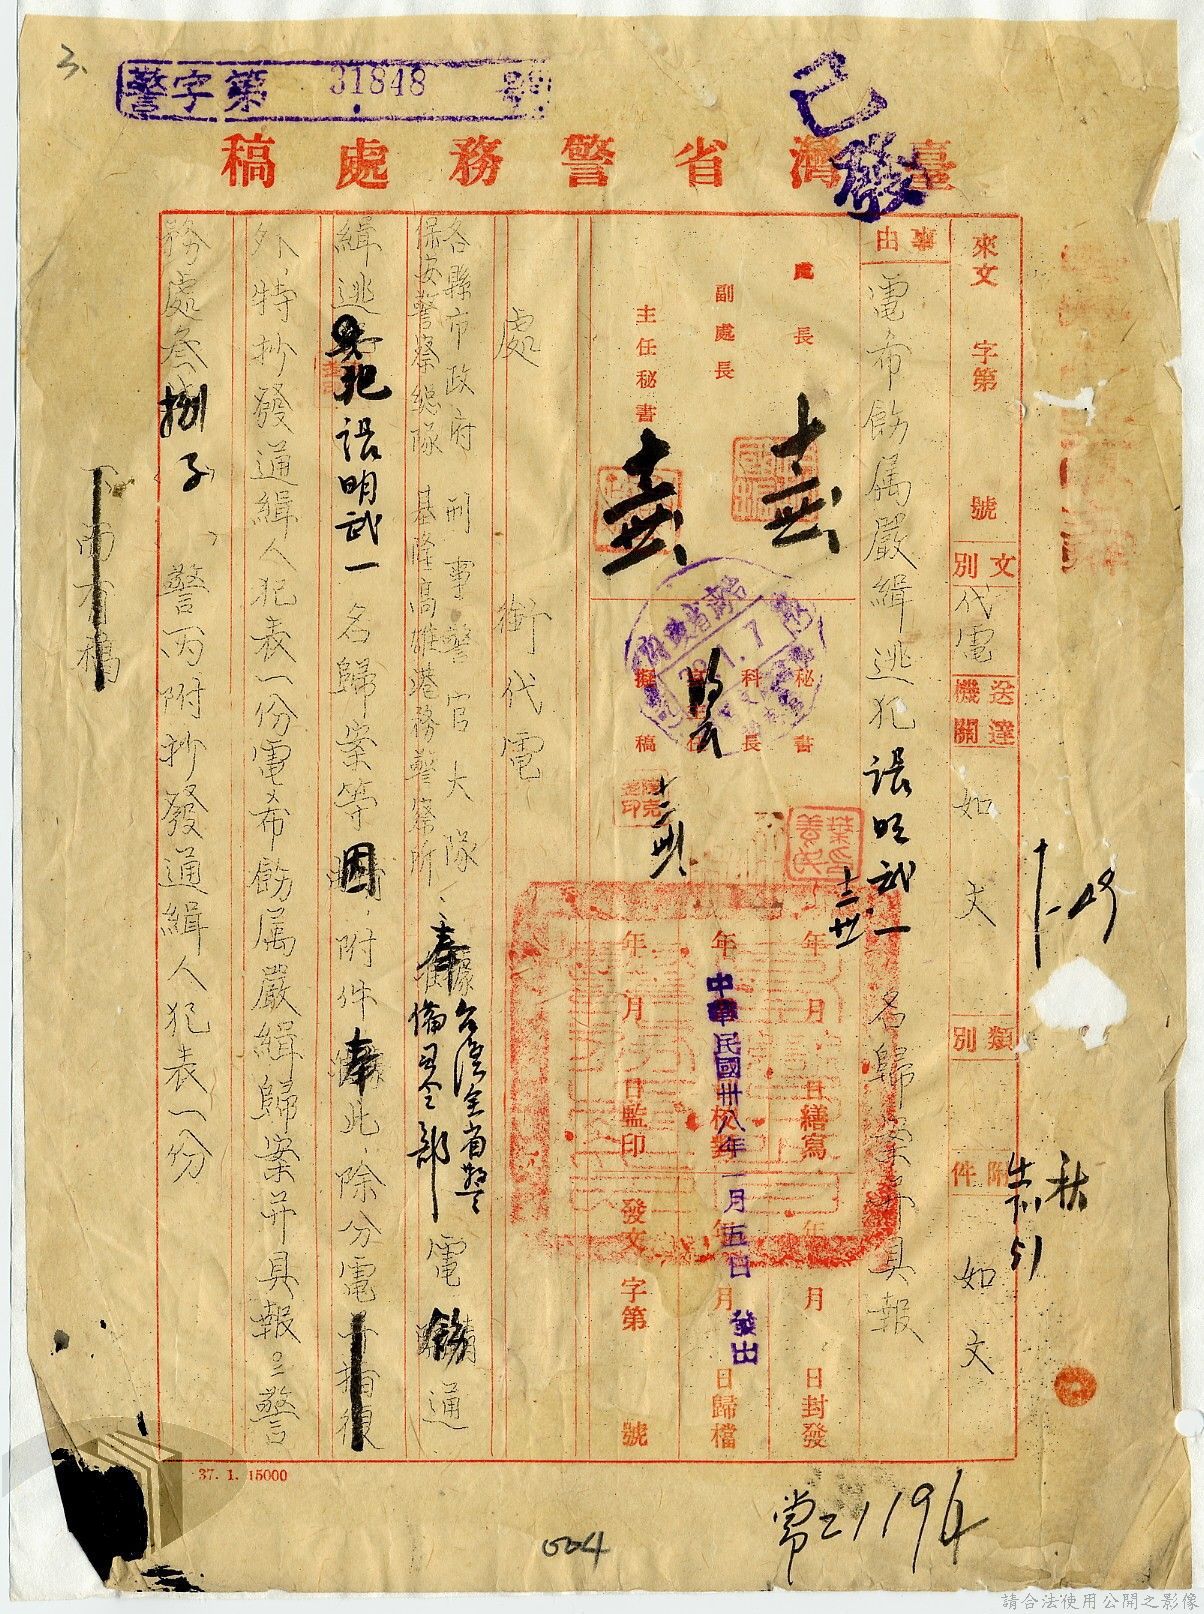 3.
警字第 31848 號
已發
臺灣省警務處稿
來文 字第 號
文別 代電
送達機關 如文
類別
附件 如文
事由 電希飭属嚴緝逃犯張明武一名歸案并具報
處長
副處長
主任秘書
秘書
科長
擬稿
年 月 日繕寫
年 月 日校對
年 月 日監印
年 月 日封發
年 月 日歸檔
發文 字第 號
中華民國卅八年一月五日發出
處銜代電
各縣市政府 刑事警官大隊
保安警察總隊 基隆高雄港務警察所
奉台灣全省警備司令部電飭通
緝逃犯張明武一名歸案等因附件奉此除分電
外特抄發通緝人犯表一份電希飭属嚴緝歸案并具報警
務處叁捌子 警丙附抄發通緝人犯表一份
37. 1. 15000
004
1196
請合法使用公開之影像